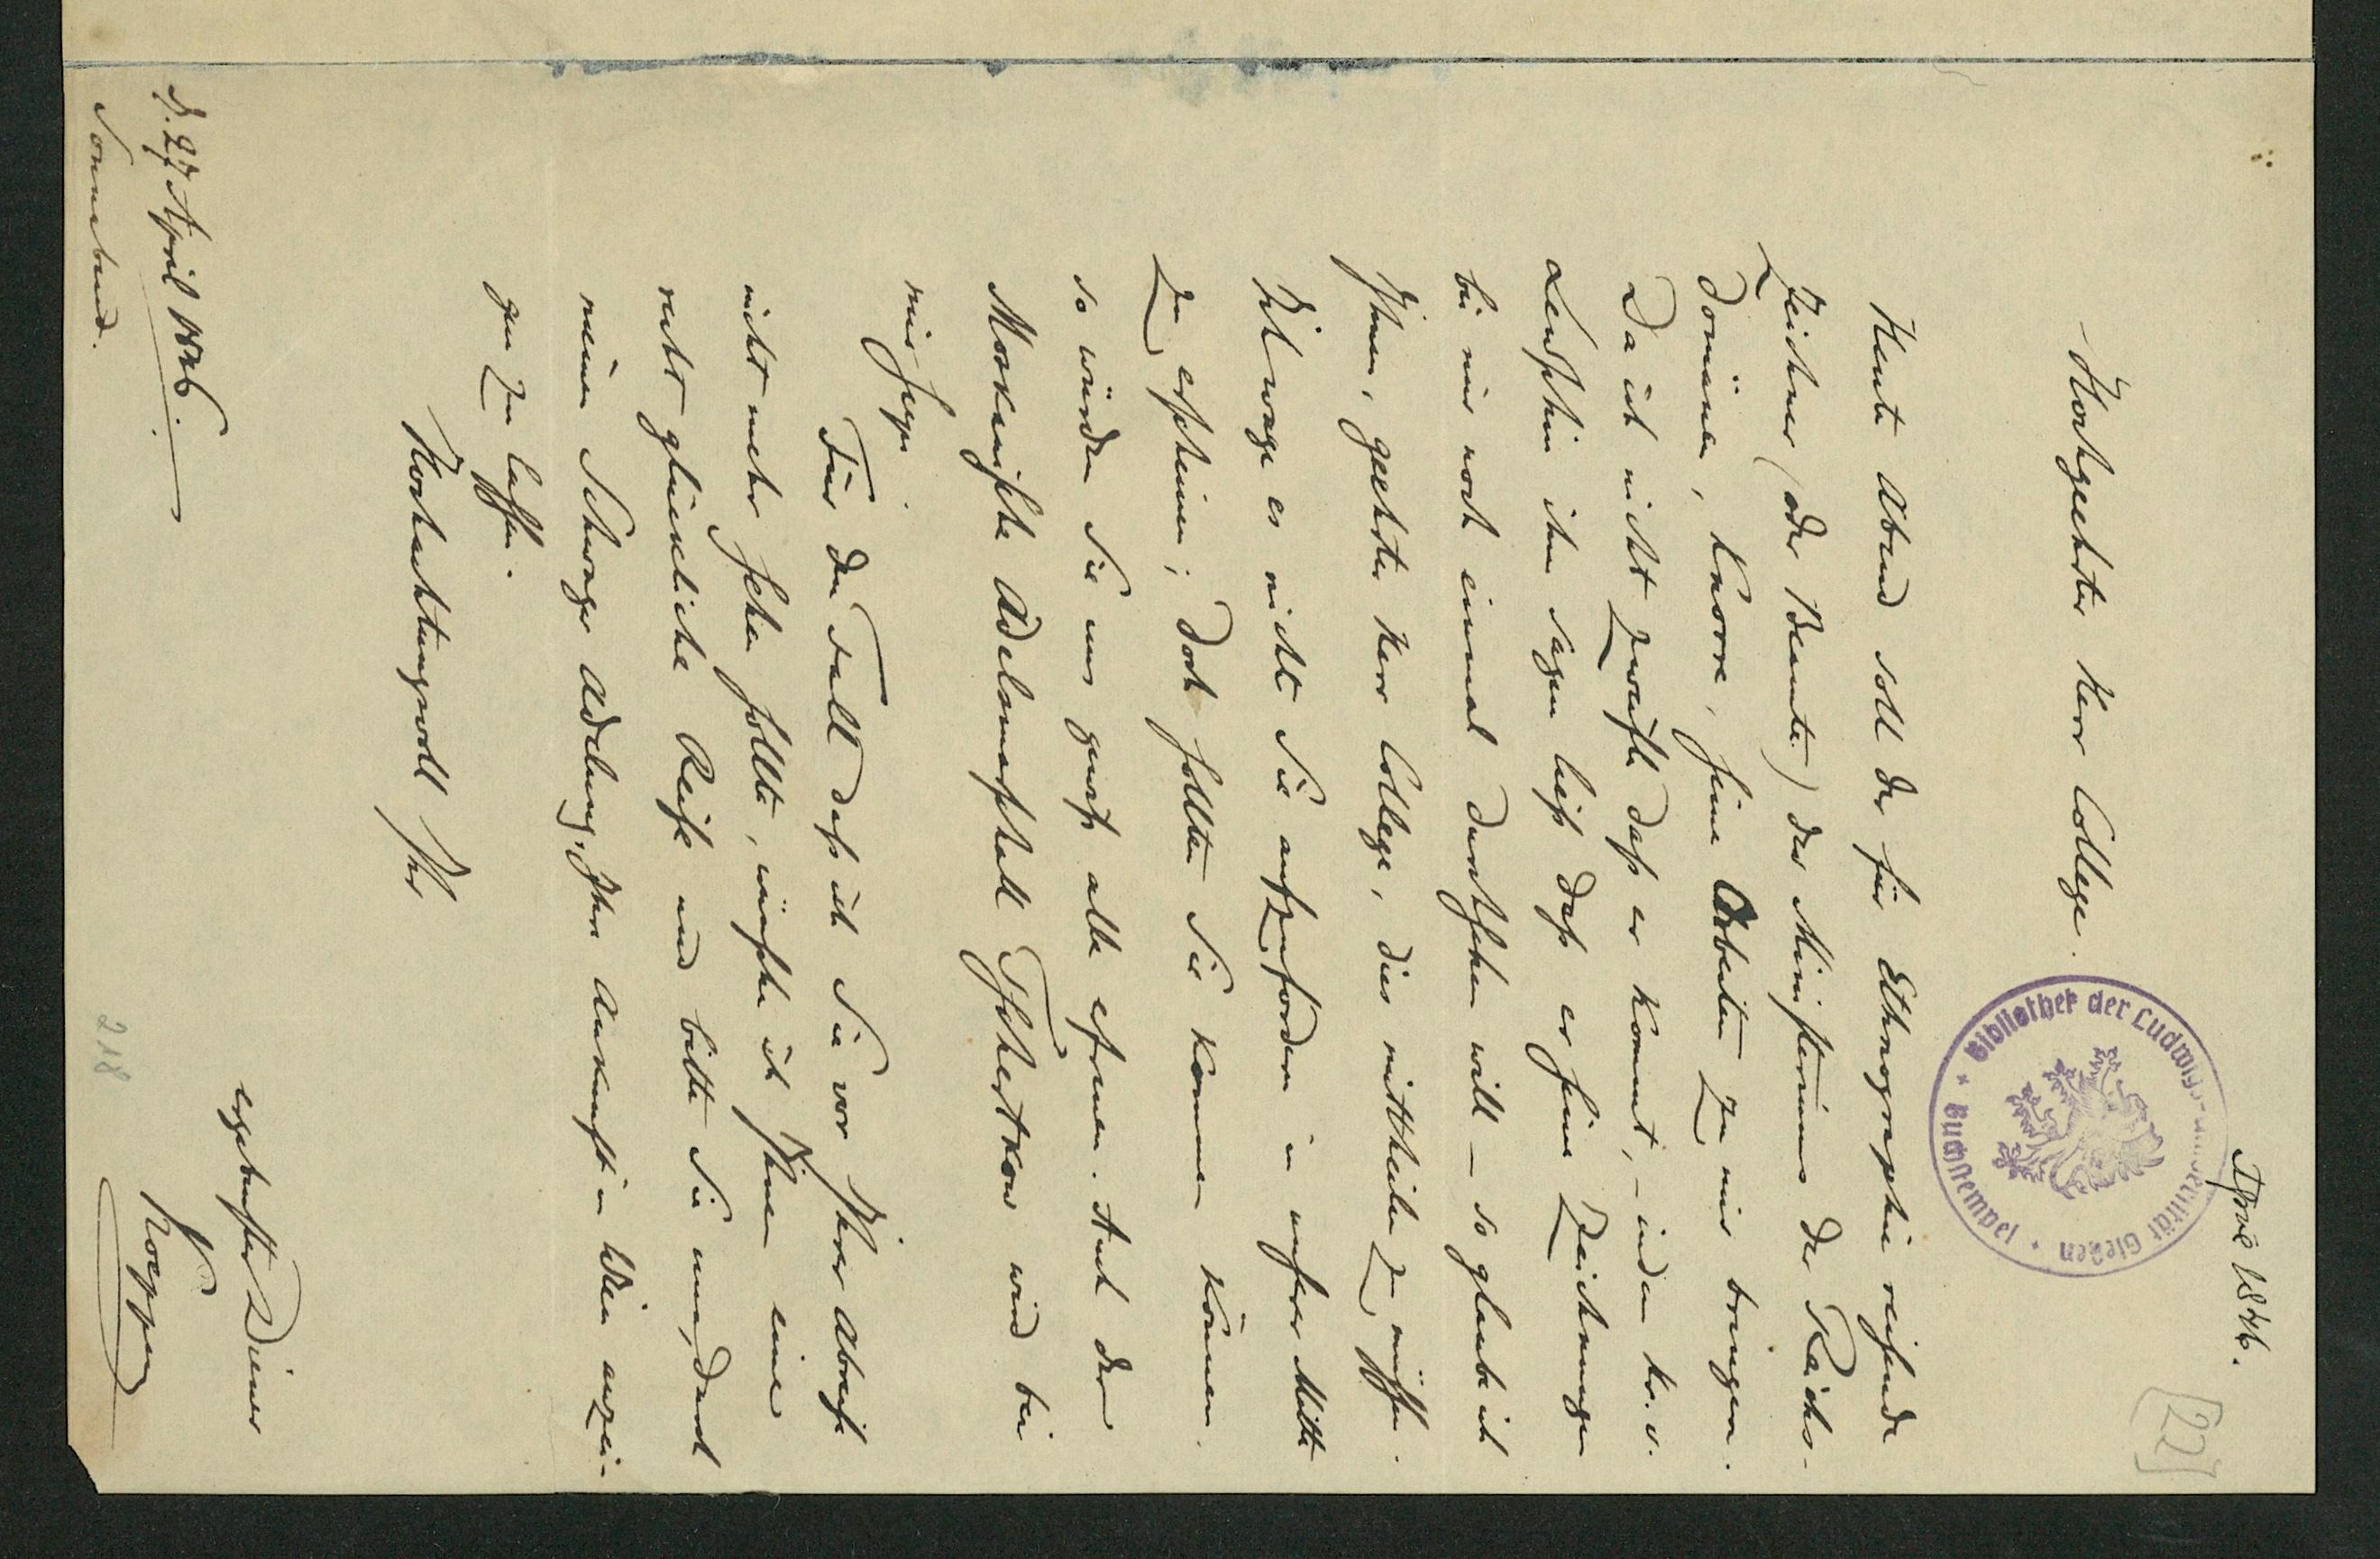 April 1846.
[22]
Bibliothek der Ludwigs-Universität Gießen * Buchstempel *
Hochgeehrter Herr College.
Heute Abend soll der für Ethnographie reisende
Zeichner (oder Beamte) des Ministeriums der Reichs-
domänen, Knorre, seine Arbeiten zu mir bringen.
Da ich nicht zweifle daß er kommt, – indem Hr. v.
Lewschin ihm sagen ließ daß er seine Zeichnungen
bei mir noch einmal durchsehen will – so glaube ich
Ihnen, geehrter Herr College, dies mittheilen zu müssen.
Ich wage es nicht Sie aufzufordern in unsrer Mitte
zu erscheinen; doch sollten Sie kommen können,
so würden Sie uns gewiß alle erfreuen. Auch der
Moskauische Adelsmarschall Tschertkow wird bei
mir seyn.
Für den Fall daß ich Sie vor Ihrer Abreise
nicht mehr sehen sollte, wünsche ich Ihnen eine
recht glückliche Reise und bitte Sie uns, durch
meinen Schwager Adelung, Ihre Ankunft in Wien anzei-
gen zu lassen.
Hochachtungsvoll Ihr
ergebenster Diener
Koeppen
D. 27 April 1846.
Sonnabend.
218